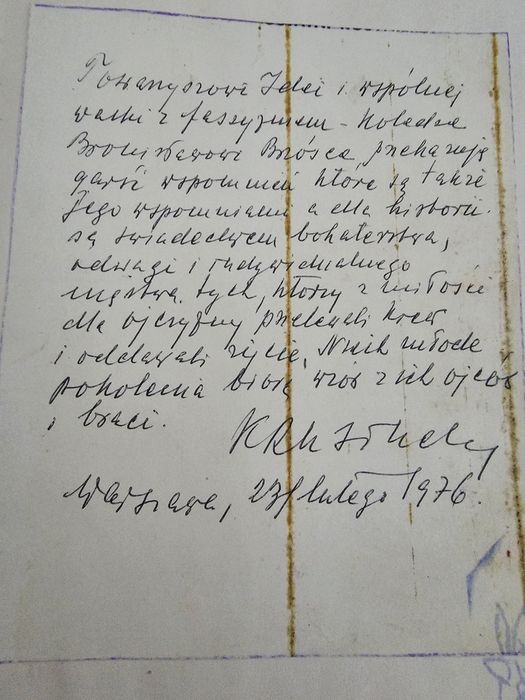 Towarzyszowi Idei i wspólnej
walki z faszyzmem - Koledze
Bronisławowi przekazuję
garść wspomnień które są także
Jego wspomnieniami a dla historii
są świadectwem bohaterstwa,
odwagi i indywidualnego
męstwa tych, którzy z miłości
dla ojczyzny przelewali krew
i oddawali życie. Niech młode
pokolenia biorą wzór z ich ojców
i braci.
Warszawa, 23 lutego 1976.